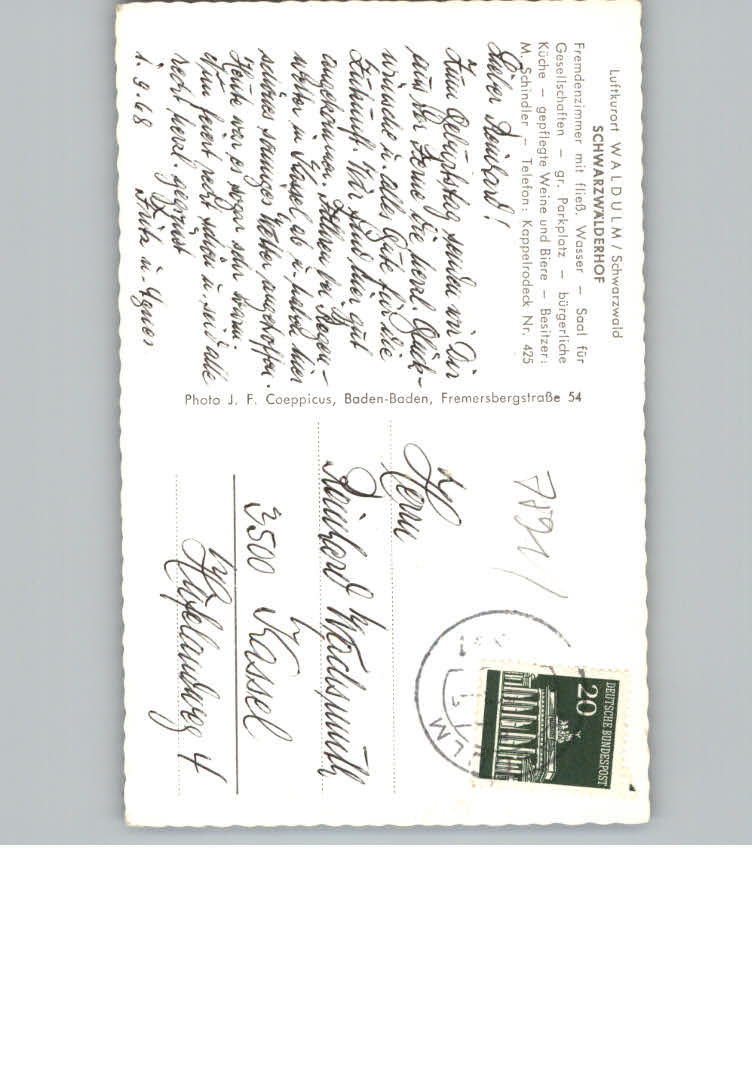 Luftkurort WALDULM / Schwarzwald
SCHWARZWÄLDERHOF
Fremdenzimmer mit fließ. Wasser – Saal für
Gesellschaften – gr. Parkplatz – bürgerliche
Küche – gepflegte Weine und Biere – Besitzer:
M. Schindler – Telefon: Kappelrodeck Nr. 425
Lieber Reinhard!
Zum Geburtstag senden wir Dir
aus der Ferne die herzl. Glück-
wünsche u. alles Gute für die
Zukunft. Wir sind hier gut
angekommen. Fuhren bei Regen-
wetter in Kassel ab u. haben hier
schönes sonniges Wetter angetroffen.
Heute war es sogar sehr warm.
Nun feiert recht schön u. seid alle
recht herzl. gegrüsst
1.9.68 Fritz u. Agnes.
Photo J. F. Coeppicus, Baden-Baden, Fremersbergstraße 54
7591
ULM
DEUTSCHE BUNDESPOST
20
Herrn
Reinhard Wachsmuth
3500 Kassel
Häfelandweg 4